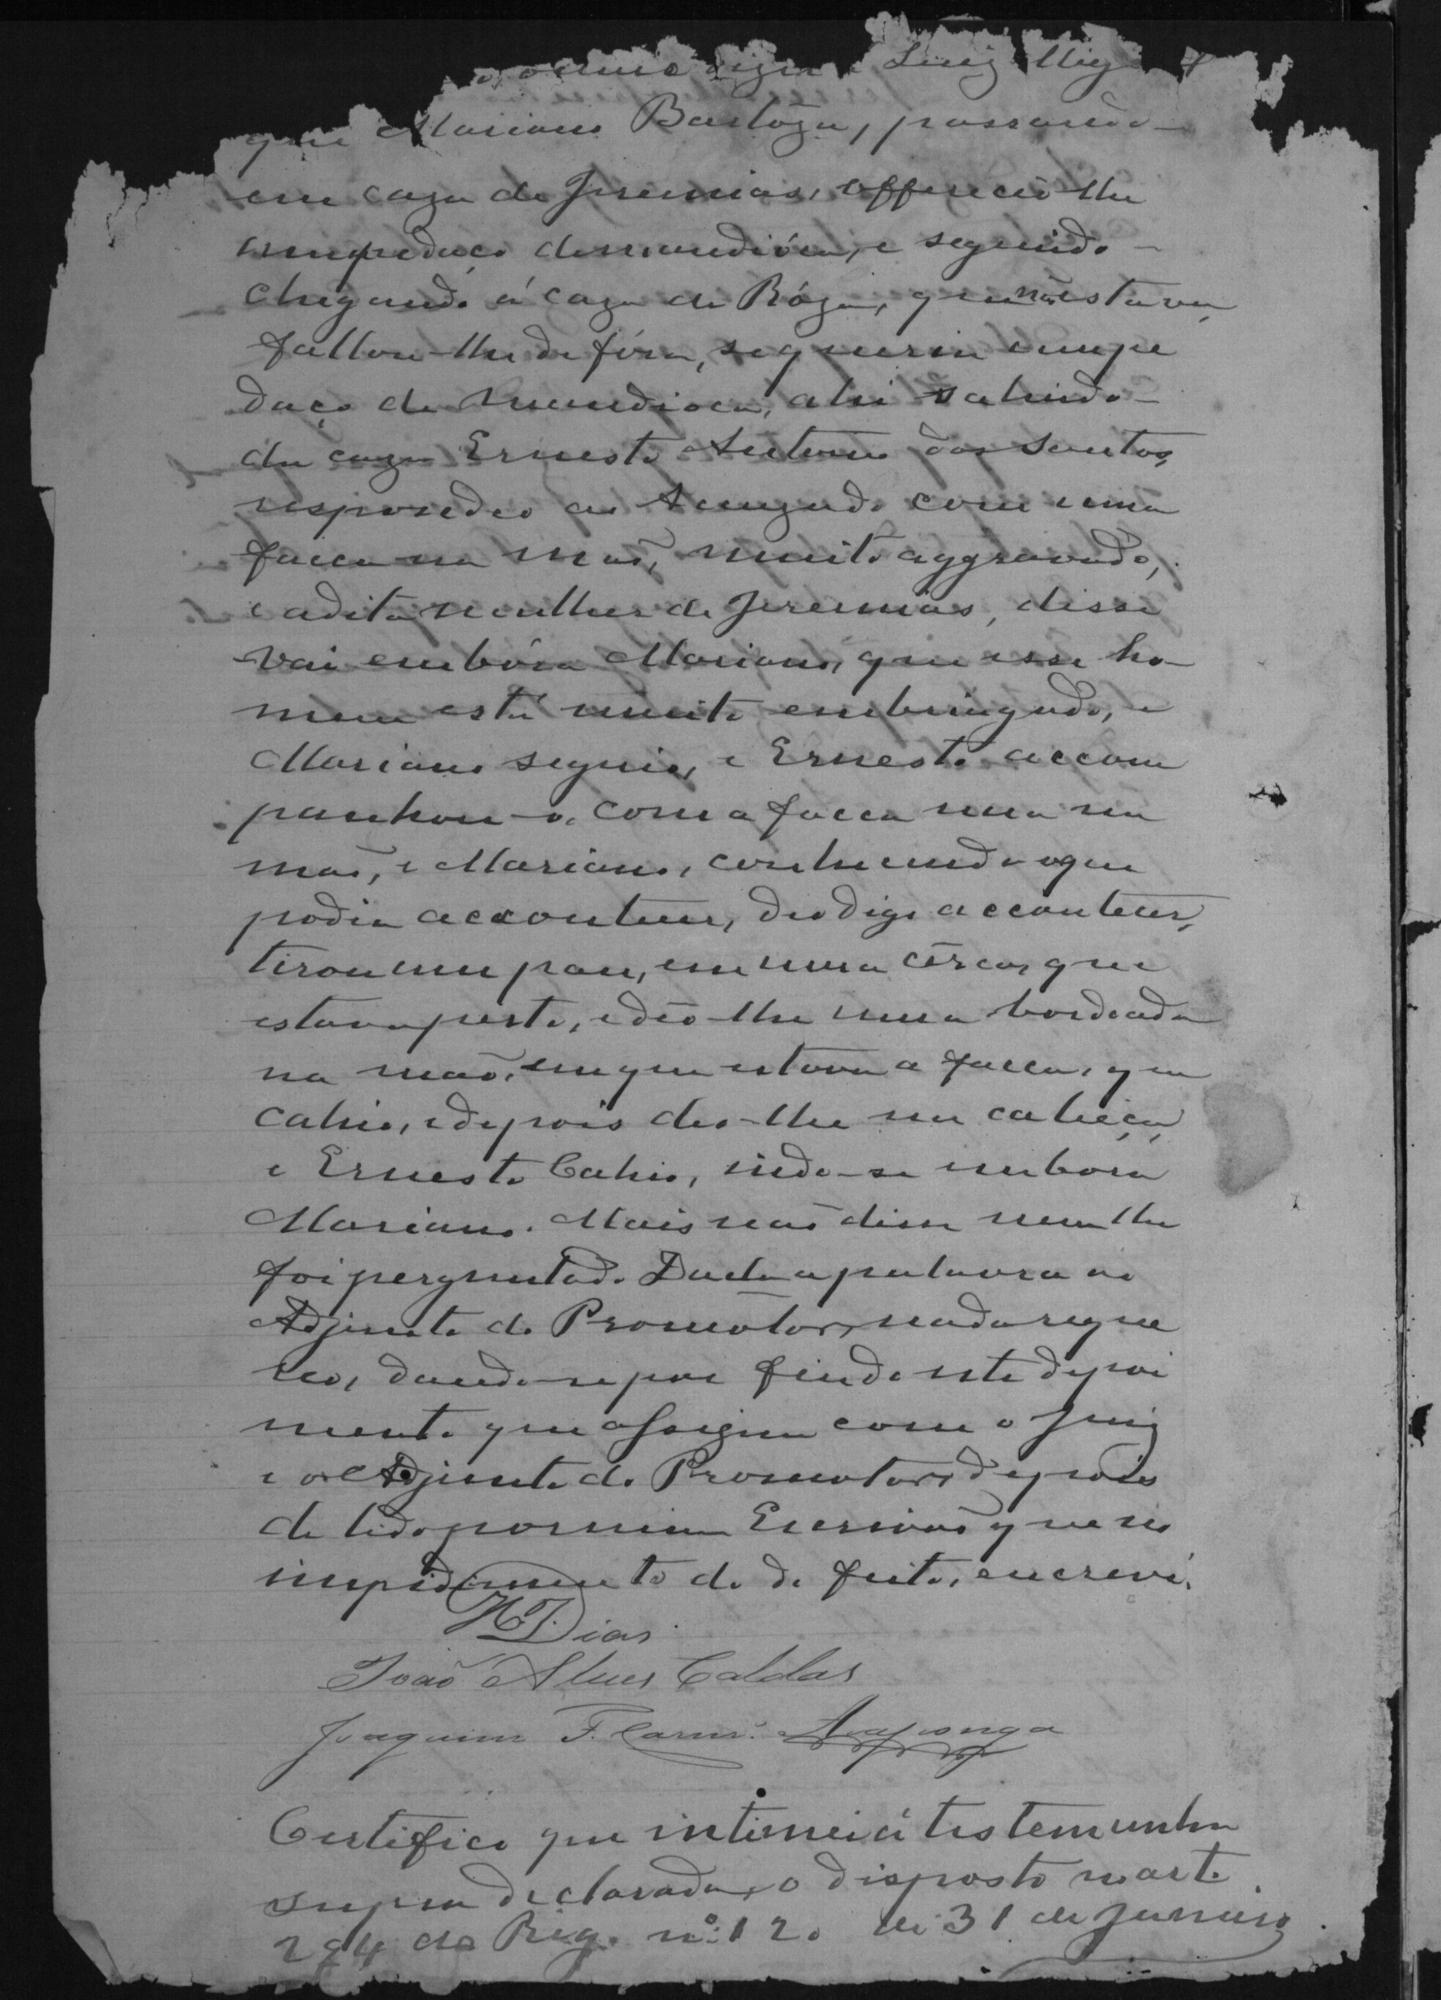 Luiz Mig
que Mariano Barboza, passando
em caza de Jeremias, offereceo-lhe
um pedaço de mandioca, e seguindo
chegando á caza de Roza, que não estava,
fallou-lhe de fóra, se queria um pe
daço de mandioca, ahi sahindo
da caza Ernesto Antonio dos Santos,
respondeo ao Accuzado com uma
facca na maõ, muito aggravado,
e a dita mulher de Jeremias, disse
vai embóra Mariano, que esse ho
mem está muito embriagado, e
Mariano seguio, e Ernesto accom
panhou-o, com a facca nua na
maõ, e Mariano, conhecendo o que
podia accontecer, deo digo accontecer,
tirou um pau, em uma cêrca, que
estava perto, e deo-lhe uma bordoada
na maõ, em que estava a facca, que
cahio, e depois deo-lhe na cabeça,
e Ernesto Cahio, indo-se embora
Mariano. Mais naõ disse nem lhe
foi perguntado. Dada a palavra ao
Adjunto do Promotor, nada reque
reo, dando-se por findo este depoi
mento que assigna com o Juiz
e o Adjunto do Promotor, depois
de lido por mim Escrivaõ que no
impedimento do de feito, escrevi.
H. T. Dias
Joaõ Alves Caldas
Joaquim F. Carn.º Araponga
Certifico que intimei á testemunha
supra declarada, o disposto no art.
294 do Reg. nº 120 de 31 de Janeiro